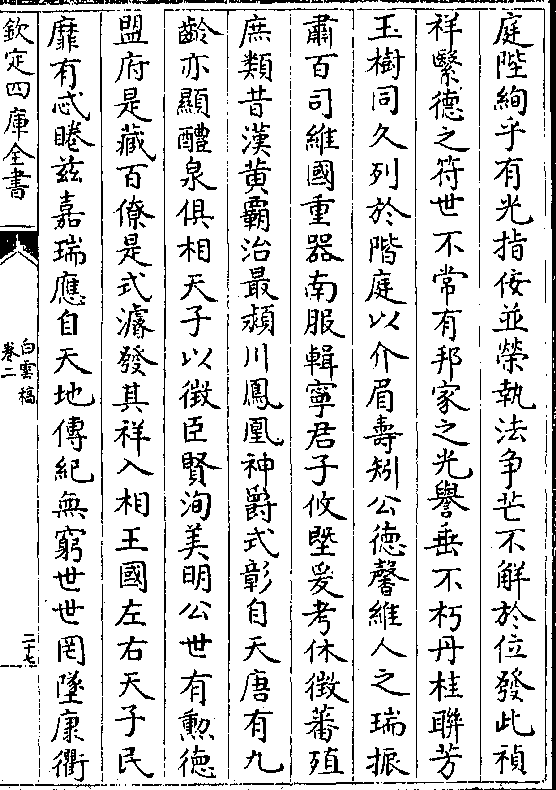 庭陛絢乎有光指佞並榮執法争芒不解於位發此禎
祥繄德之符世不常有邦家之光譽垂不朽丹桂聨芳
玉樹同久列於階庭以介眉壽矧公德馨維人之瑞振
肅百司維國重器南服輯寧君子攸塈爰考休徴蕃殖
庶類昔漢黄霸治最潁川鳳凰神爵式彰自天唐有九
齡亦顯醴泉俱相天子以徴臣賢洵美明公世有勲德
盟府是藏百僚是式濬發其祥入相王國左右天子民
靡有忒睠兹嘉瑞應自天地傳紀無窮世世罔墜康衢
欽定四庫全書
白雲稿
卷二
二十七